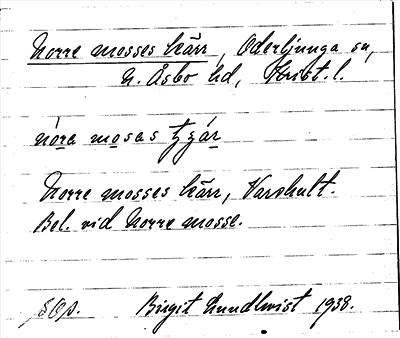 Norre mosses kärr, Oderljunga sn,
N. Åsbo hd, Krist. l.
nóra moses
Norre mosses kärr, Varshult.
Bel. vid Norre mosse.
Birgit Lundkvist 1938.